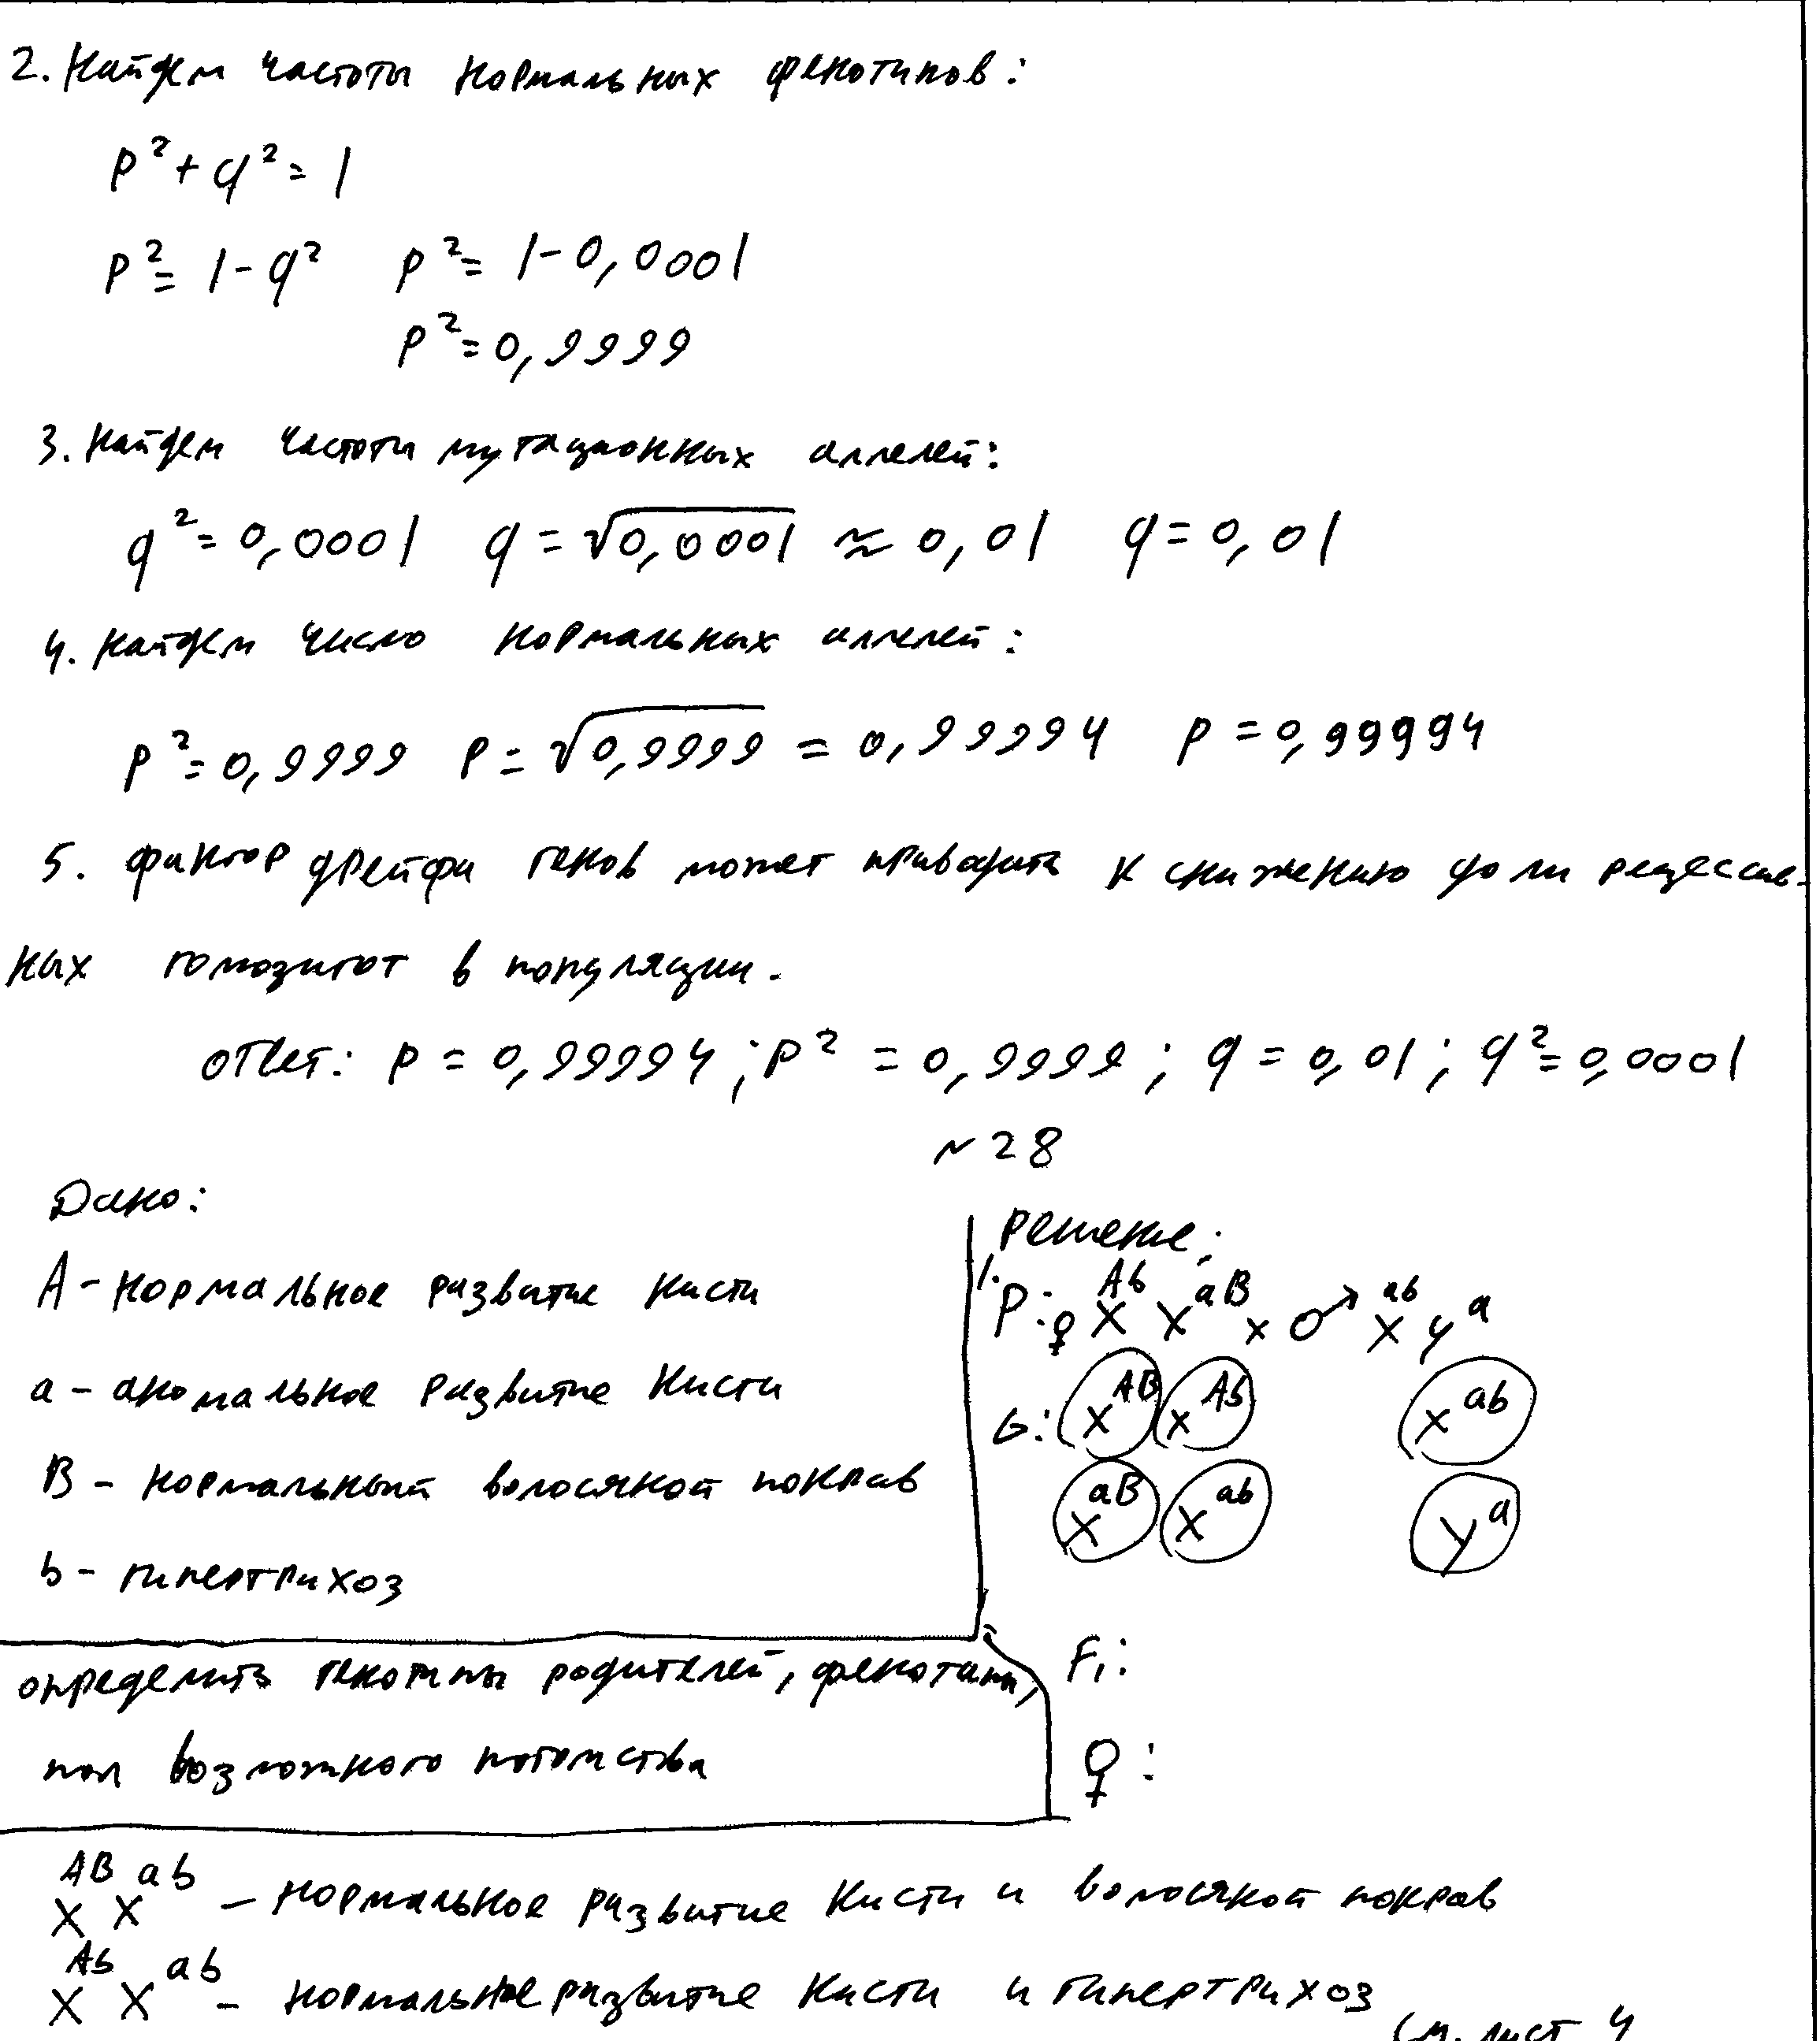 2. Найдем частоты нормальных фенотипов:
p² + q² = 1
p² = 1 - q² p² = 1 - 0,0001
p² = 0,9999
3. Найдем частоты мутационных аллелей:
q² = 0,0001 q = √0,0001 ≈ 0,01 q = 0,01
4. Найдем число нормальных аллелей:
p² = 0,9999 p = √0,9999 = 0,99994 p = 0,99994
5. фактор дрейфа генов может приводить к снижению доли рецессив-
ных гомозигот в популяции.
ответ: p = 0,99994 ; p² = 0,9999 ; q = 0,01 ; q² = 0,0001
~ 28
Дано:
A - нормальное развитие кисти
a - аномальное развитие кисти
B - нормальный волосяной покрав
b - гипертрихоз
определить генотипы родителей, фенотипы,
пол возможного потомства
Решение:
1. P: ♀ X^Ab X^aB x ♂ X^ab y^a
G: X^AB X^Ab X^ab
X^aB X^ab y^a
F₁:
♀:
X^AB X^ab - нормальное развитие кисти и волосяной покрав
X^Ab X^ab - нормальное развитие кисти и гипертрихоз
см. лист 4